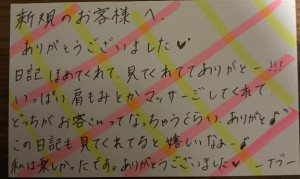 新規のお客様へ
ありがとうございました♥
日記ほめてくれて、見てくれててありがとー!!!
いっぱい肩もみとかマッサージしてくれて、
どっちがお客さんってなっちゃうくらい、ありがと♪
この日記も見てくれてると嬉しいなぁー♪
私は楽しかったです。ありがとうございました♥